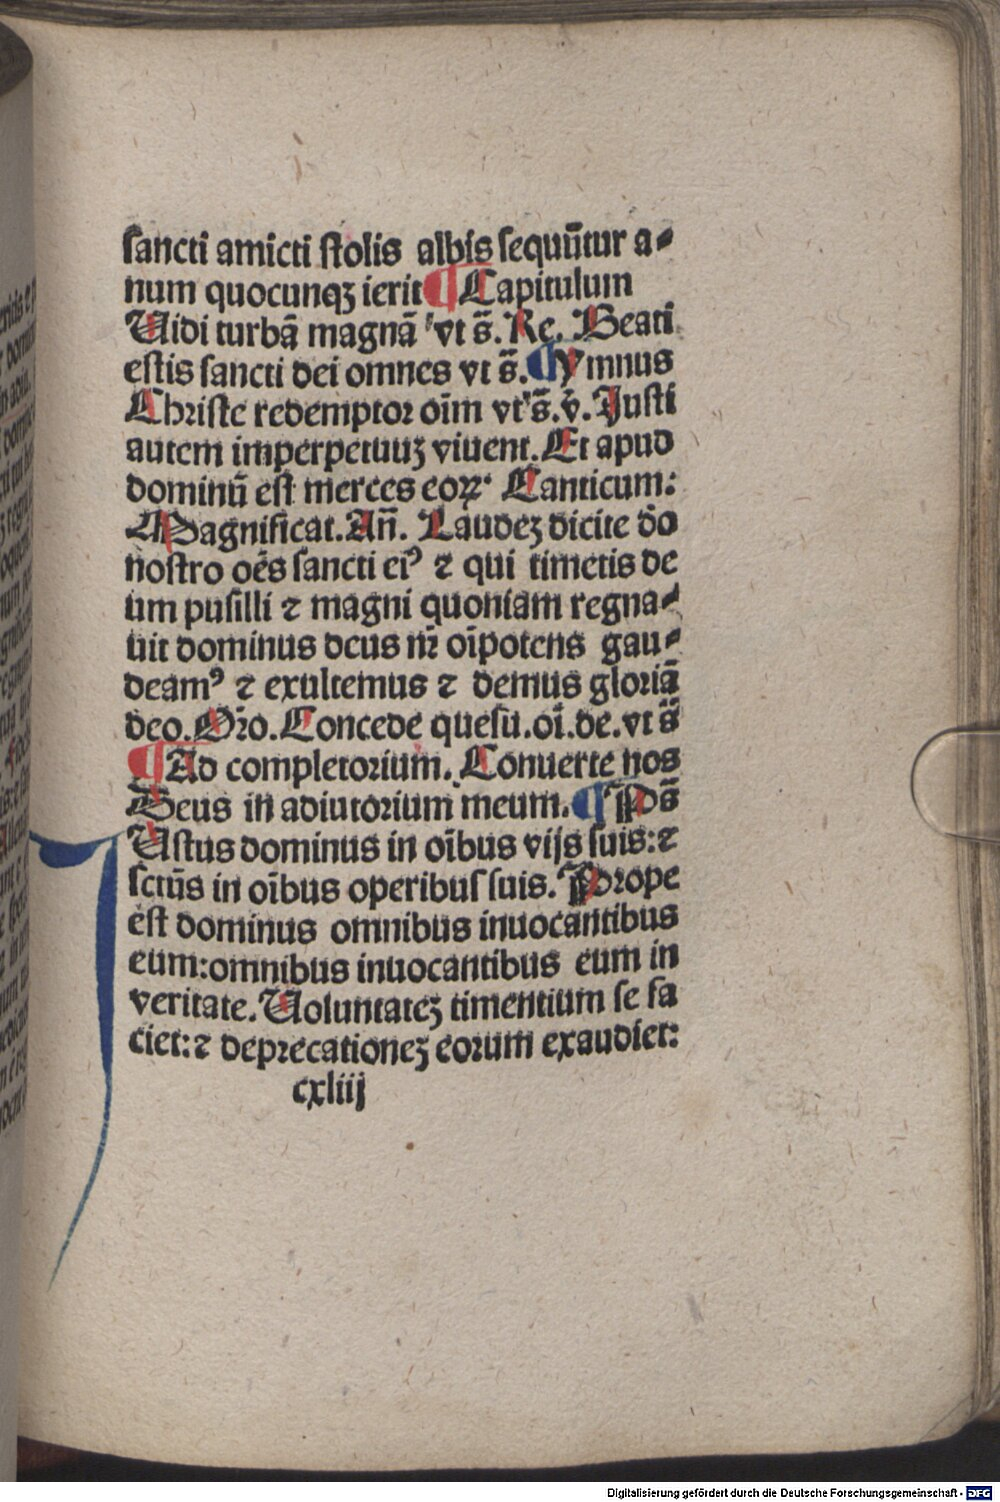 sancti amicti stolis albis sequūtur a-
num quocunqꝫ ierit ¶ Capitulum
Uidi turbā magnā vt s̄. Re. Beati
estis sancti dei omnes vt s̄. ¶ Ymnus
Christe redemptor oīm vt s̄. v̄. Justi
autem imperpetuuꝫ viuent. Et apud
dominū est merces eoꝝ. Canticum:
Magnificat. Añ. Laudeꝫ dicite do
nostro oēs sancti eiꝰ ⁊ qui timetis de
um pusilli ⁊ magni quoniam regna-
uit dominus deus nr̄ oīpotens gau-
deamꝰ ⁊ exultemus ⁊ demus gloriā
deo. Oro. Concede quesu. oī. de. vt s̄
¶ Ad completorium. Conuerte nos
Deus in adiutorium meum. ¶ Ps̄
JUstus dominus in oībus vijs suis: ⁊
sctūs in oībus operibus suis. Prope
est dominus omnibus inuocantibus
eum: omnibus inuocantibus eum in
veritate. Uoluntateꝫ timentium se fa
ciet: ⁊ deprecationeꝫ eorum exaudiet:
cxliij
Digitalisierung gefördert durch die Deutsche Forschungsgemeinschaft - DFG